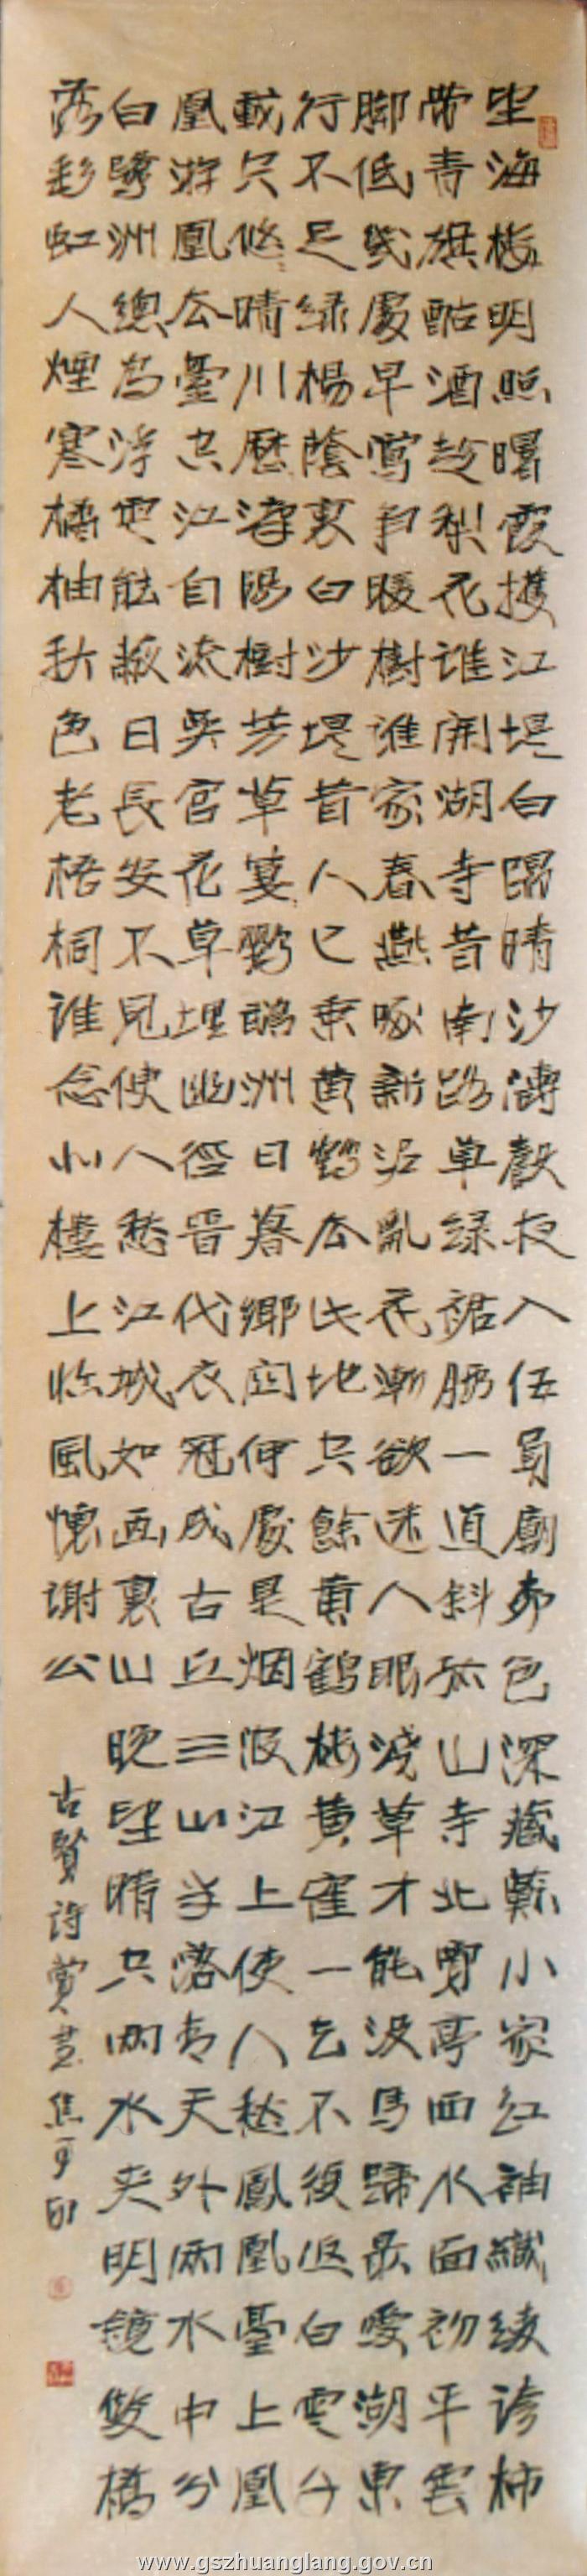 望海楼明照曙霞護江堤白蹋晴沙濤聲夜入伍員廟柳色深藏蘇小家紅袖織綾誇柿
帶青旗酤酒趁梨花誰開湖寺昔南路草緑裙腰一道斜孤山寺北賈亭西水面初平雲
脚低幾處早鶯爭暖樹誰家春燕啄新泥亂花漸欲迷人眼淺草才能没馬蹄最愛湖東
行不足緑楊蔭裏白沙堤昔人已乘黄鶴去此地只餘黄鶴楼黄鶴一去不復返白雲千
載只悠悠晴川歷歷漢陽樹芳草萋萋鸚鵡洲日暮鄉関何處是烟波江上使人愁鳳凰臺上鳳
凰游鳳去臺空江自流吴宫花草埋幽徑晋代衣冠成古丘三山半落青天外两水中分
白鷺洲總為浮雲能蔽日長安不見使人愁江城如画裏山晚望晴空兩水夾明鏡雙橋
落彩虹人煙寒橘柚秋色老梧桐誰念北樓上临風懷謝公
古賢詩賞意焦
www.gszhuanglang.gov.cn